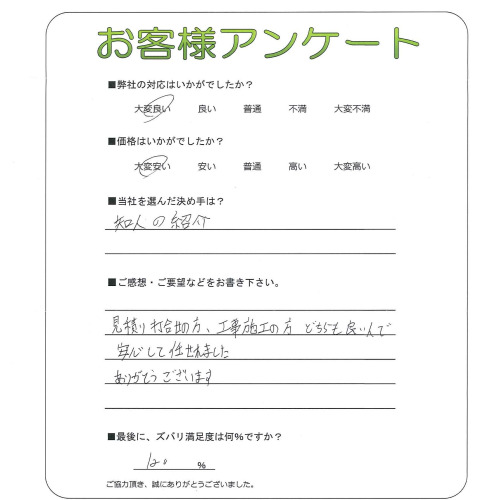 お客様アンケート
■弊社の対応はいかがでしたか？
大変良い 良い 普通 不満 大変不満
■価格はいかがでしたか？
大変安い 安い 普通 高い 大変高い
■当社を選んだ決め手は？
知人の紹介
■ご感想・ご要望などをお書き下さい。
見積り打合せの方、工事施工の方 どちらも良い人で
安心して任せれました
ありがとうございます
■最後に、ズバリ満足度は何%ですか？
120 %
ご協力頂き、誠にありがとうございました。